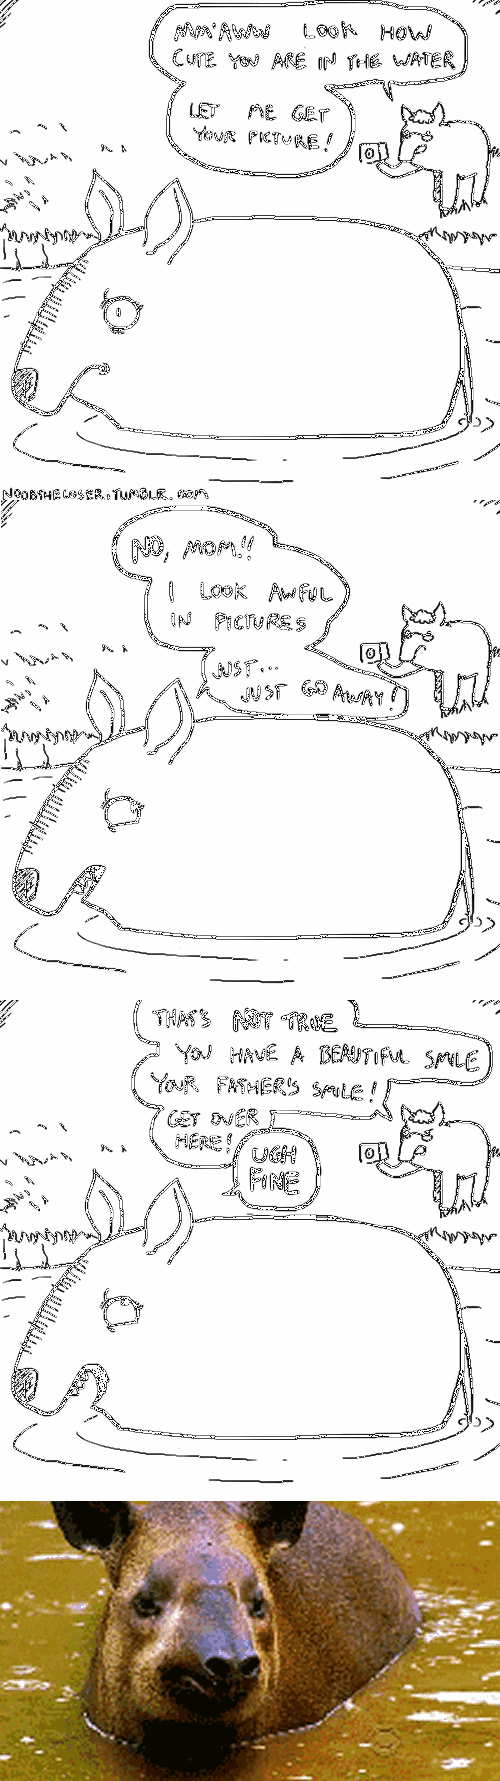 MM'AWW LOOK HOW
CUTE YOU ARE IN THE WATER
LET ME GET
YOUR PICTURE!
NOOBTHELOSER.TUMBLR.COM
NO, MOM!!
I LOOK AWFUL
IN PICTURES
JUST...
JUST GO AWAY!
THAT'S NOT TRUE
YOU HAVE A BEAUTIFUL SMILE
YOUR FATHER'S SMILE!
GET OVER
HERE!
UGH
FINE